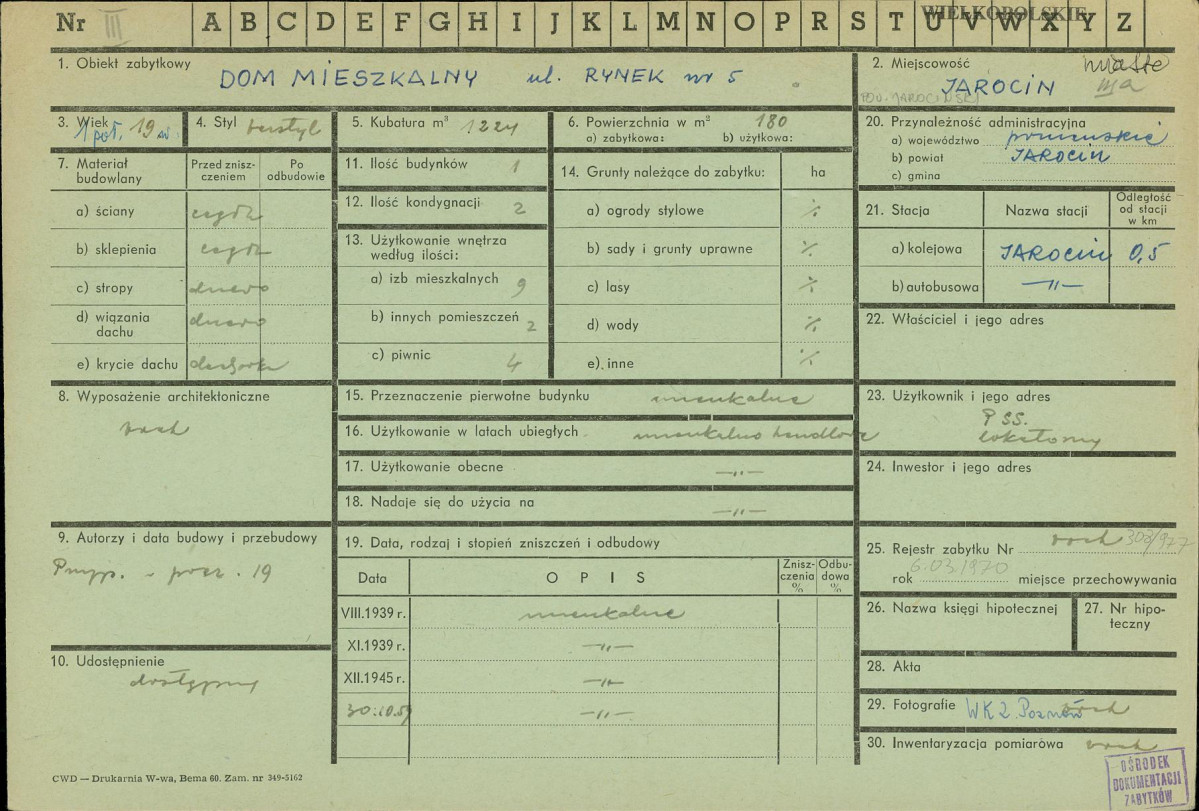 Nr III A B C D E F G H I J K L M N O P R S T U V W X Y Z
WIELKOPOLSKIE
1. Obiekt zabytkowy
DOM MIESZKALNY ul. RYNEK nr 5
2. Miejscowość miasto
JAROCIN
POW. JAROCIŃSKI
3. Wiek
1 poł. 19 w.
4. Styl bezstyl
5. Kubatura m³ 1224
6. Powierzchnia w m² 180
a) zabytkowa: b) użytkowa:
7. Materiał budowlany
Przed zniszczeniem
Po odbudowie
a) ściany cegła
b) sklepienia cegła
c) stropy drewno
d) wiązania dachu drewno
e) krycie dachu dachówka
8. Wyposażenie architektoniczne
brak
9. Autorzy i data budowy i przebudowy
Przyp. - pocz. 19
10. Udostępnienie
dostępny
11. Ilość budynków 1
12. Ilość kondygnacji 2
13. Użytkowanie wnętrza
według ilości:
a) izb mieszkalnych 9
b) innych pomieszczeń 2
c) piwnic 4
14. Grunty należące do zabytku: ha
a) ogrody stylowe ./.
b) sady i grunty uprawne ./.
c) lasy ./.
d) wody ./.
e) inne ./.
15. Przeznaczenie pierwotne budynku mieszkalne
16. Użytkowanie w latach ubiegłych mieszkalno handlowe
17. Użytkowanie obecne —„—
18. Nadaje się do użycia na —„—
19. Data, rodzaj i stopień zniszczeń i odbudowy
Data OPIS Zniszczenia % Odbudowa %
VIII.1939 r. mieszkalne
XI.1939 r. —„—
XII.1945 r. —„—
30.10.59 —„—
20. Przynależność administracyjna
a) województwo poznańskie
b) powiat JAROCIN
c) gmina
21. Stacja Nazwa stacji Odległość od stacji w km
a) kolejowa JAROCIN 0,5
b) autobusowa —„—
22. Właściciel i jego adres
23. Użytkownik i jego adres
PSS.
lokatorzy
24. Inwestor i jego adres
25. Rejestr zabytku Nr brak 302/977
rok 6.03.1970 miejsce przechowywania
26. Nazwa księgi hipotecznej
27. Nr hipoteczny
28. Akta
29. Fotografie WKZ. Poznań brak
30. Inwentaryzacja pomiarowa brak
CWD — Drukarnia W-wa, Bema 60. Zam. nr 349-5162
OŚRODEK
DOKUMENTACJI
ZABYTKÓW